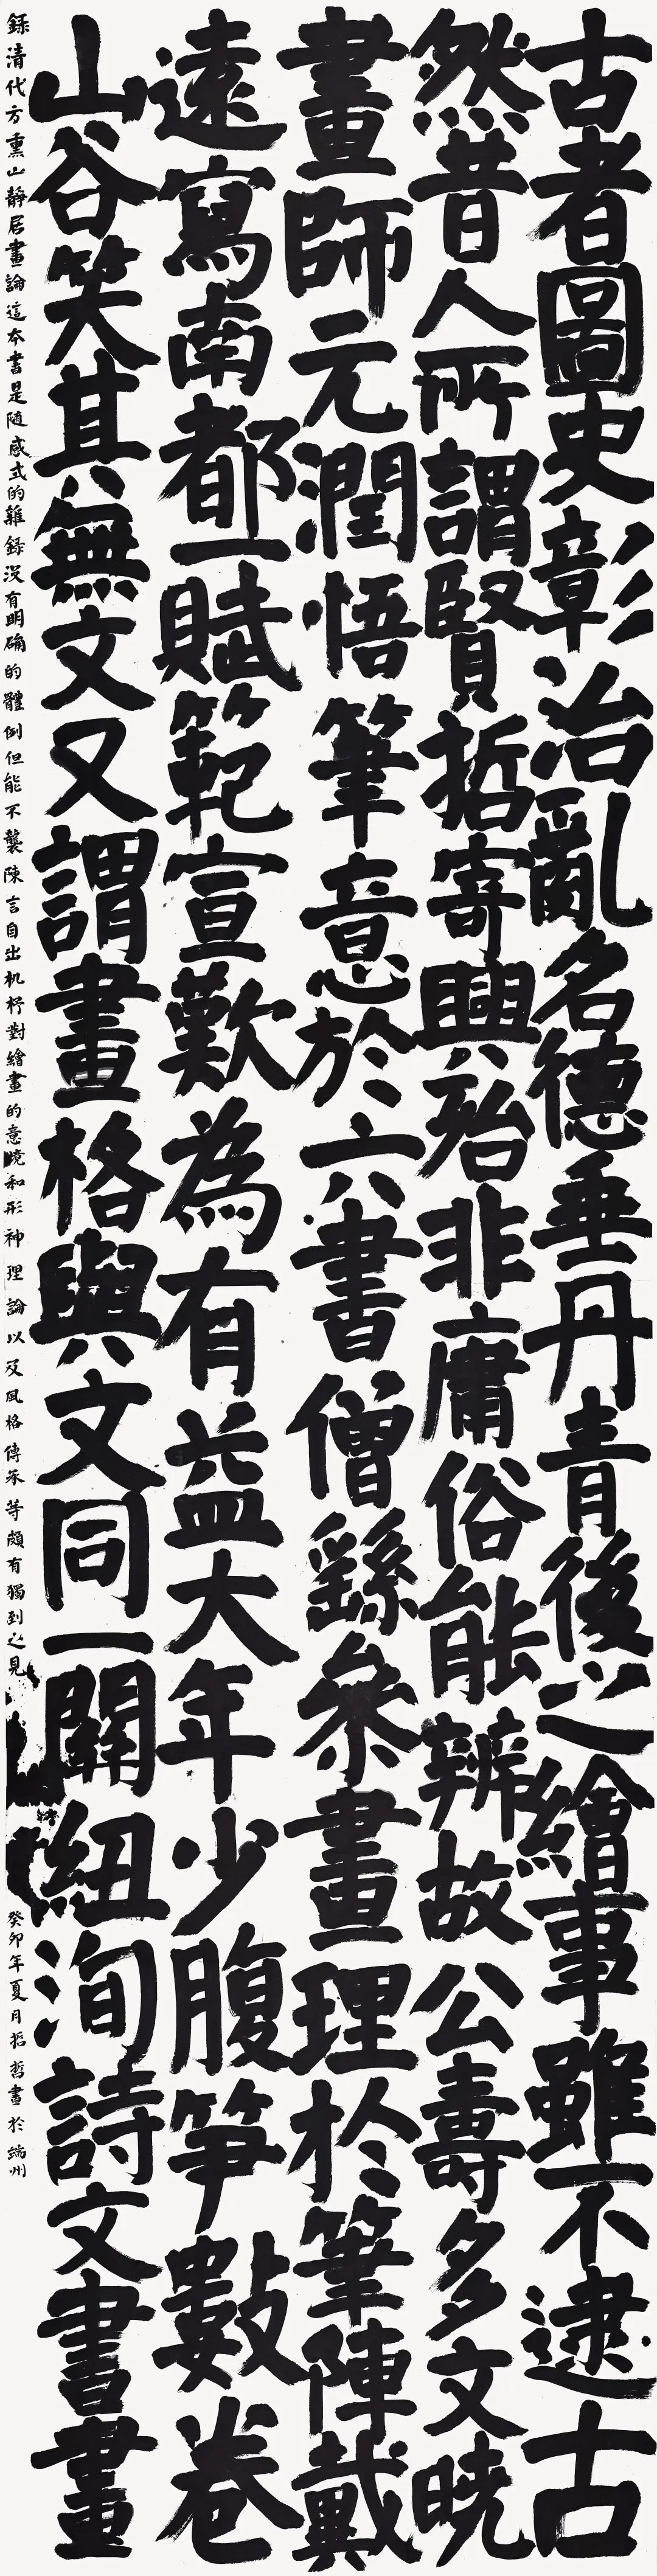 古者圖史彰治亂名德垂丹青後之繪事雖不逮古
然昔人所謂賢哲寄興殆非庸俗能辨故公壽多文曉
畫師元潤悟筆意於六書僧繇參畫理於筆陣戴
逵寫南都一賦範宣歎為有益大年少腹笥數卷
山谷笑其無文又謂畫格與文同一關紐洵詩文書畫
錄清代方熏山靜居畫論這本書是隨感式的雜錄没有明确的體例但能不襲陳言自出机杼對繪畫的意境和形神理論以及風格傳承等頗有獨到之見
癸卯年夏月哲書於端州